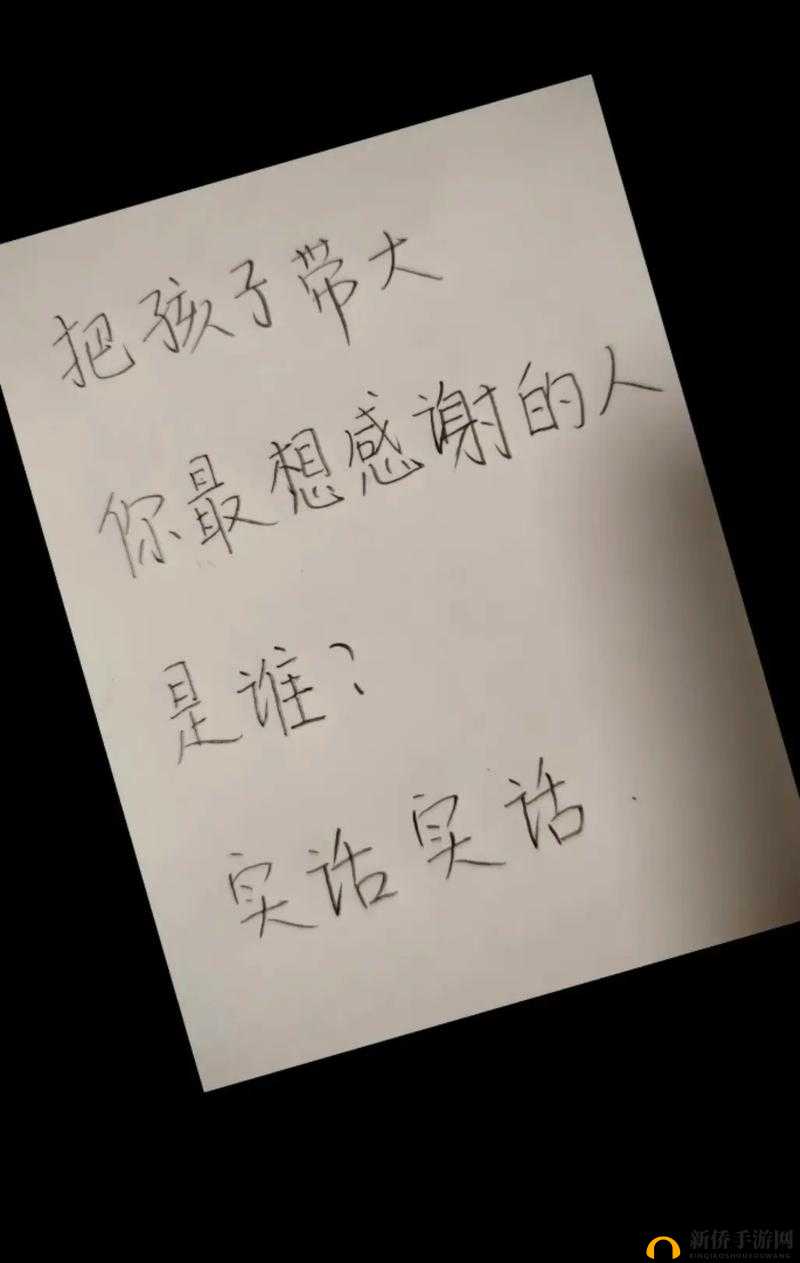 把孩子带大
你最想感谢的人
是谁?
实话实话.
新侨手游网
XINQIAOSHOUYOUWANG